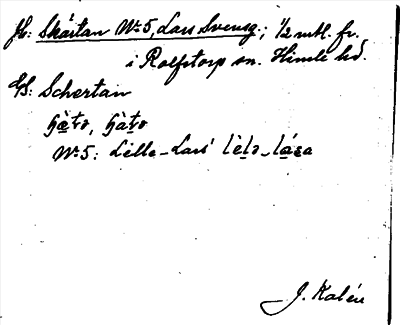 Js: Skårtan No 5, Lars Svensg.; 1/2 mtl. fr.
i Rolfstorp sn. Himle hd.
GS: Schertan
No 5: Lille-Lars' lèlə-láza
J. Kalén